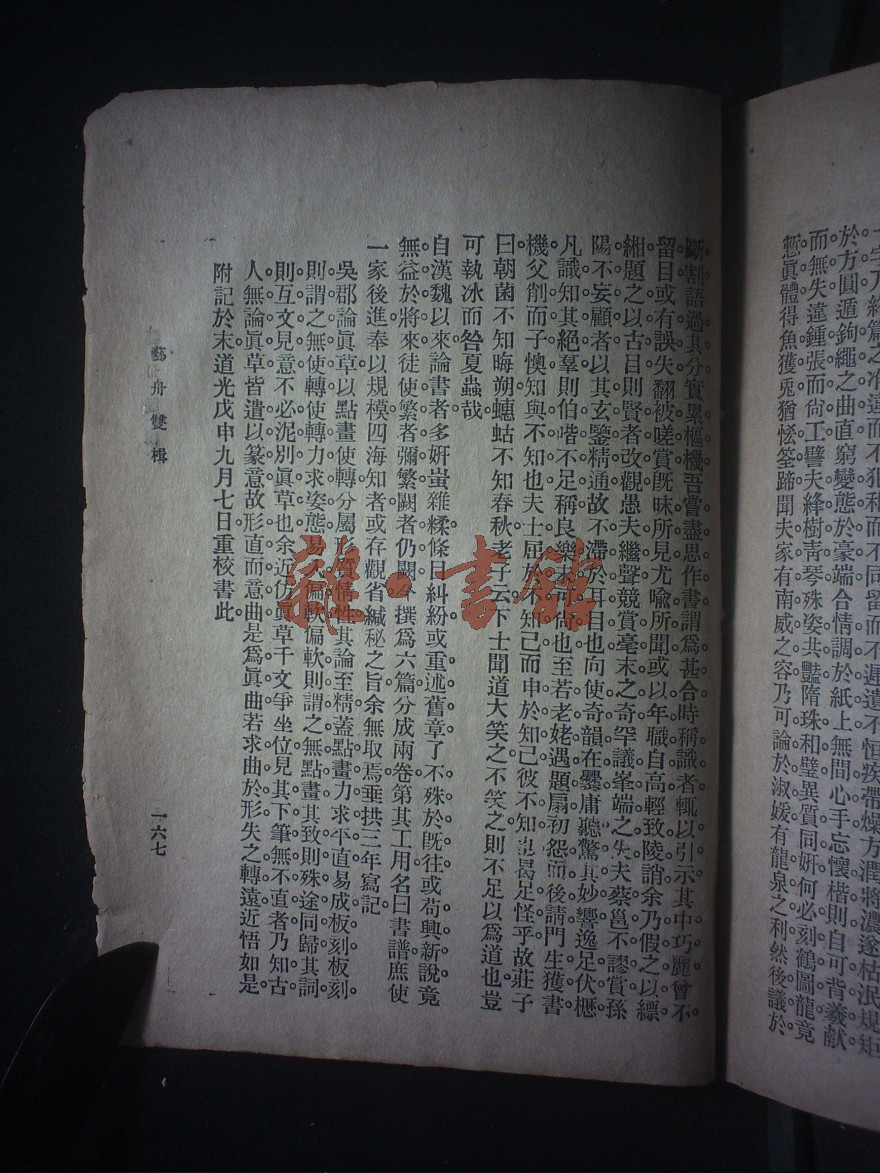 於方圓遁鉤繩之曲直窮變態於豪端合情調於紙上無間心手忘懷楷則自可背羲獻
而無失違鍾張而尚工譬夫絳樹靑琴殊姿共豔隋珠和璧異質同妍何必刻鶴圖龍竟
慙眞體得魚獲兎猶恡筌蹄聞夫家有南威之容乃可論於淑媛有龍泉之利然後議於
斷割語過其分實累樞機吾嘗盡思作書謂爲甚合時稱識者輒以引示其中巧麗曾不
留目或有誤失翻被嗟賞旣昧所見尤喩所聞或以年職自高輕致陵誚余乃假之以縹
緗題之以古目則賢者改觀愚夫繼聲競賞毫末之奇罕議峯端之失夫蔡邕不謬賞孫
陽不妄顧者以其玄鑒精通故不滯於耳目也向使奇韻在爨庸聽驚其妙響逸足伏櫪
凡識知其絕羣則伯喈不足稱良樂未可尚也至若老姥遇題扇初怨而後請門生獲書
機父削而子懊知與不知也夫士屈於不知己而申於知己彼不知也曷足怪乎故莊子
曰朝菌不知晦朔蟪蛄不知春秋老子云下士聞道大笑之不笑之則不足以爲道也豈
可執冰而咎夏蟲哉
自漢魏以來論書者多姸蚩雜糅條目糾紛或重述舊章了不殊於旣往或苟興新說竟
無益於將來徒使繁者彌繁闕者仍闕今撰爲六篇分成兩卷第其工用名曰書譜庶使
一家後進奉以規模四海知者或存觀省緘秘之旨余無取焉垂拱三年寫記
吳郡論眞草以點畫使轉分屬形質情性其論至精蓋點畫力求平直易成板刻板刻
則謂之無使轉使轉力求姿態易入偏軟偏軟則謂之無點畫其致則殊途同歸其詞
則互文見意不必泥別眞草也余近仿眞草千文爭坐位見其下筆無不直者乃知古
人無論眞草皆遺以篆意故形直而意曲是爲眞曲若求曲於形失之轉遠近悟如是
附記於末道光戊申九月七日重校書此
藝舟雙楫
一六七
雜·書館